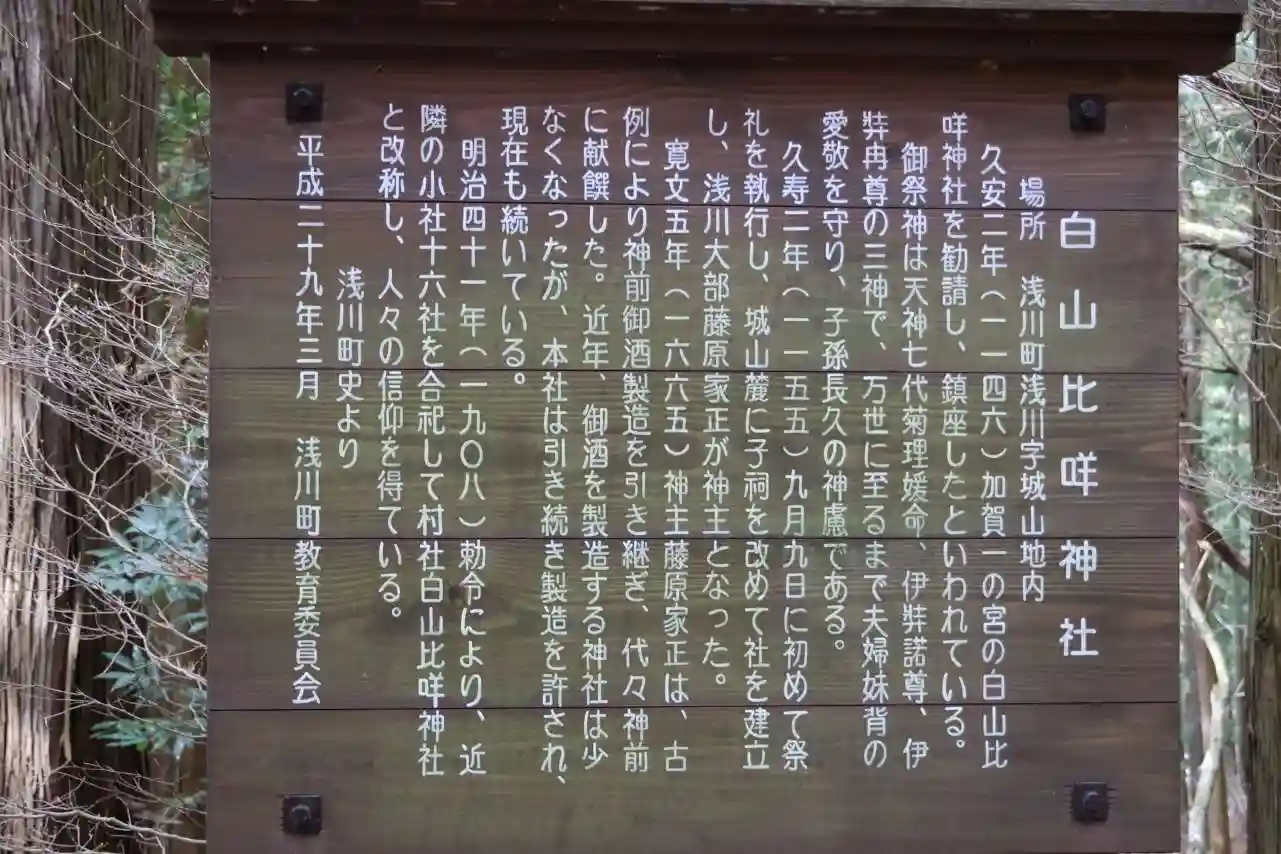 白山比咩神社
場所　浅川町浅川字城山地内
久安二年（一一四六）加賀一の宮の白山比
咩神社を勧請し、鎮座したといわれている。
御祭神は天神七代菊理媛命、伊弉諾尊、伊
弉冉尊の三神で、万世に至るまで夫婦妹背の
愛敬を守り、子孫長久の神慮である。
久寿二年（一一五五）九月九日に初めて祭
礼を執行し、城山麓に子祠を改めて社を建立
し、浅川大部藤原家正が神主となった。
寛文五年（一六六五）神主藤原家正は、古
例により神前御酒製造を引き継ぎ、代々神前
に献饌した。近年、御酒を製造する神社は少
なくなったが、本社は引き続き製造を許され、
現在も続いている。
明治四十一年（一九〇八）勅令により、近
隣の小社十六社を合祀して村社白山比咩神社
と改称し、人々の信仰を得ている。
浅川町史より
平成二十九年三月　浅川町教育委員会